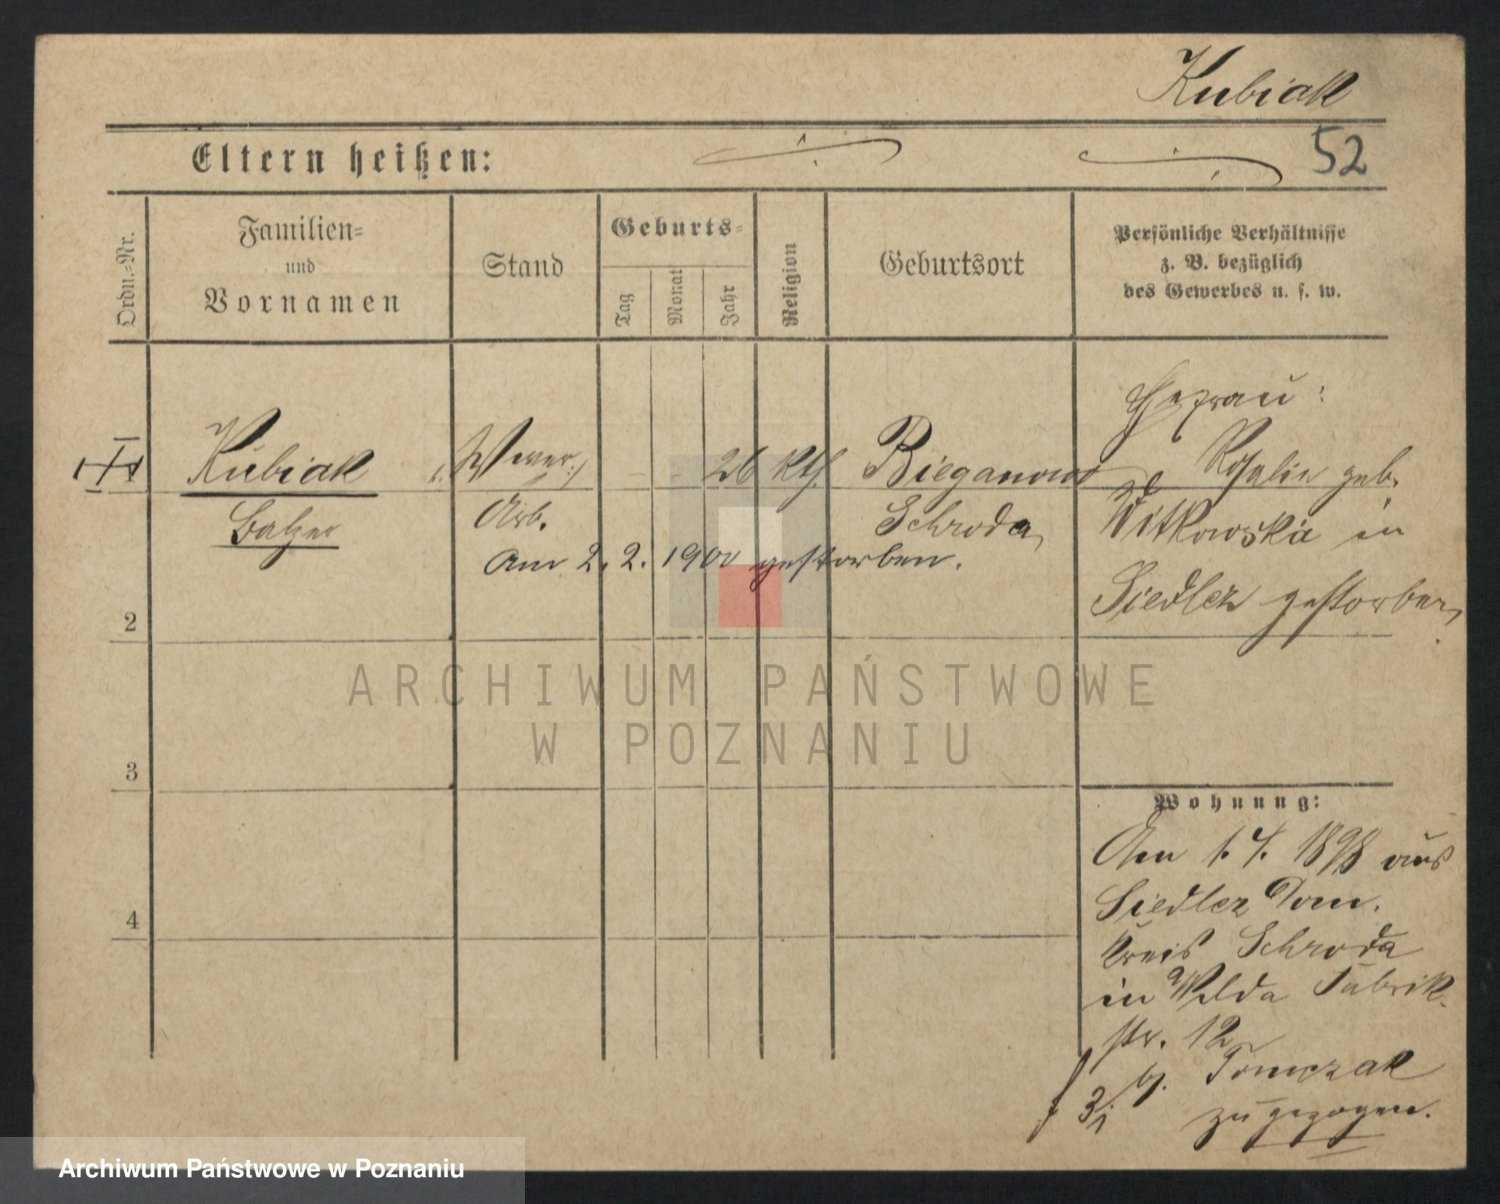 Kubiak
52
Eltern heißen:
Ordn.-Nr.
Familien-
und
Vornamen
Stand
Geburts-
Tag
Monat
Jahr
Religion
Geburtsort
Persönliche Verhältnisse
z. B. bezüglich
des Gewerbes u. s. w.
Ehefrau:
Kubiak
- - 26 kth. Bieganowo
Rosalie geb.
Balzer
Arb.
Schroda
Witkowska in
Am 2. 2. 1900 gestorben.
Siedlez gestorben
2
3
4
Wohnung:
Am 1. 4. 1898 aus
Siedlez Dom.
Kreis Schroda
in Wilda Fabrik-
str. 12
b. Tomczak
zugezogen.
ARCHIWUM PAŃSTWOWE
W POZNANIU
Archiwum Państwowe w Poznaniu